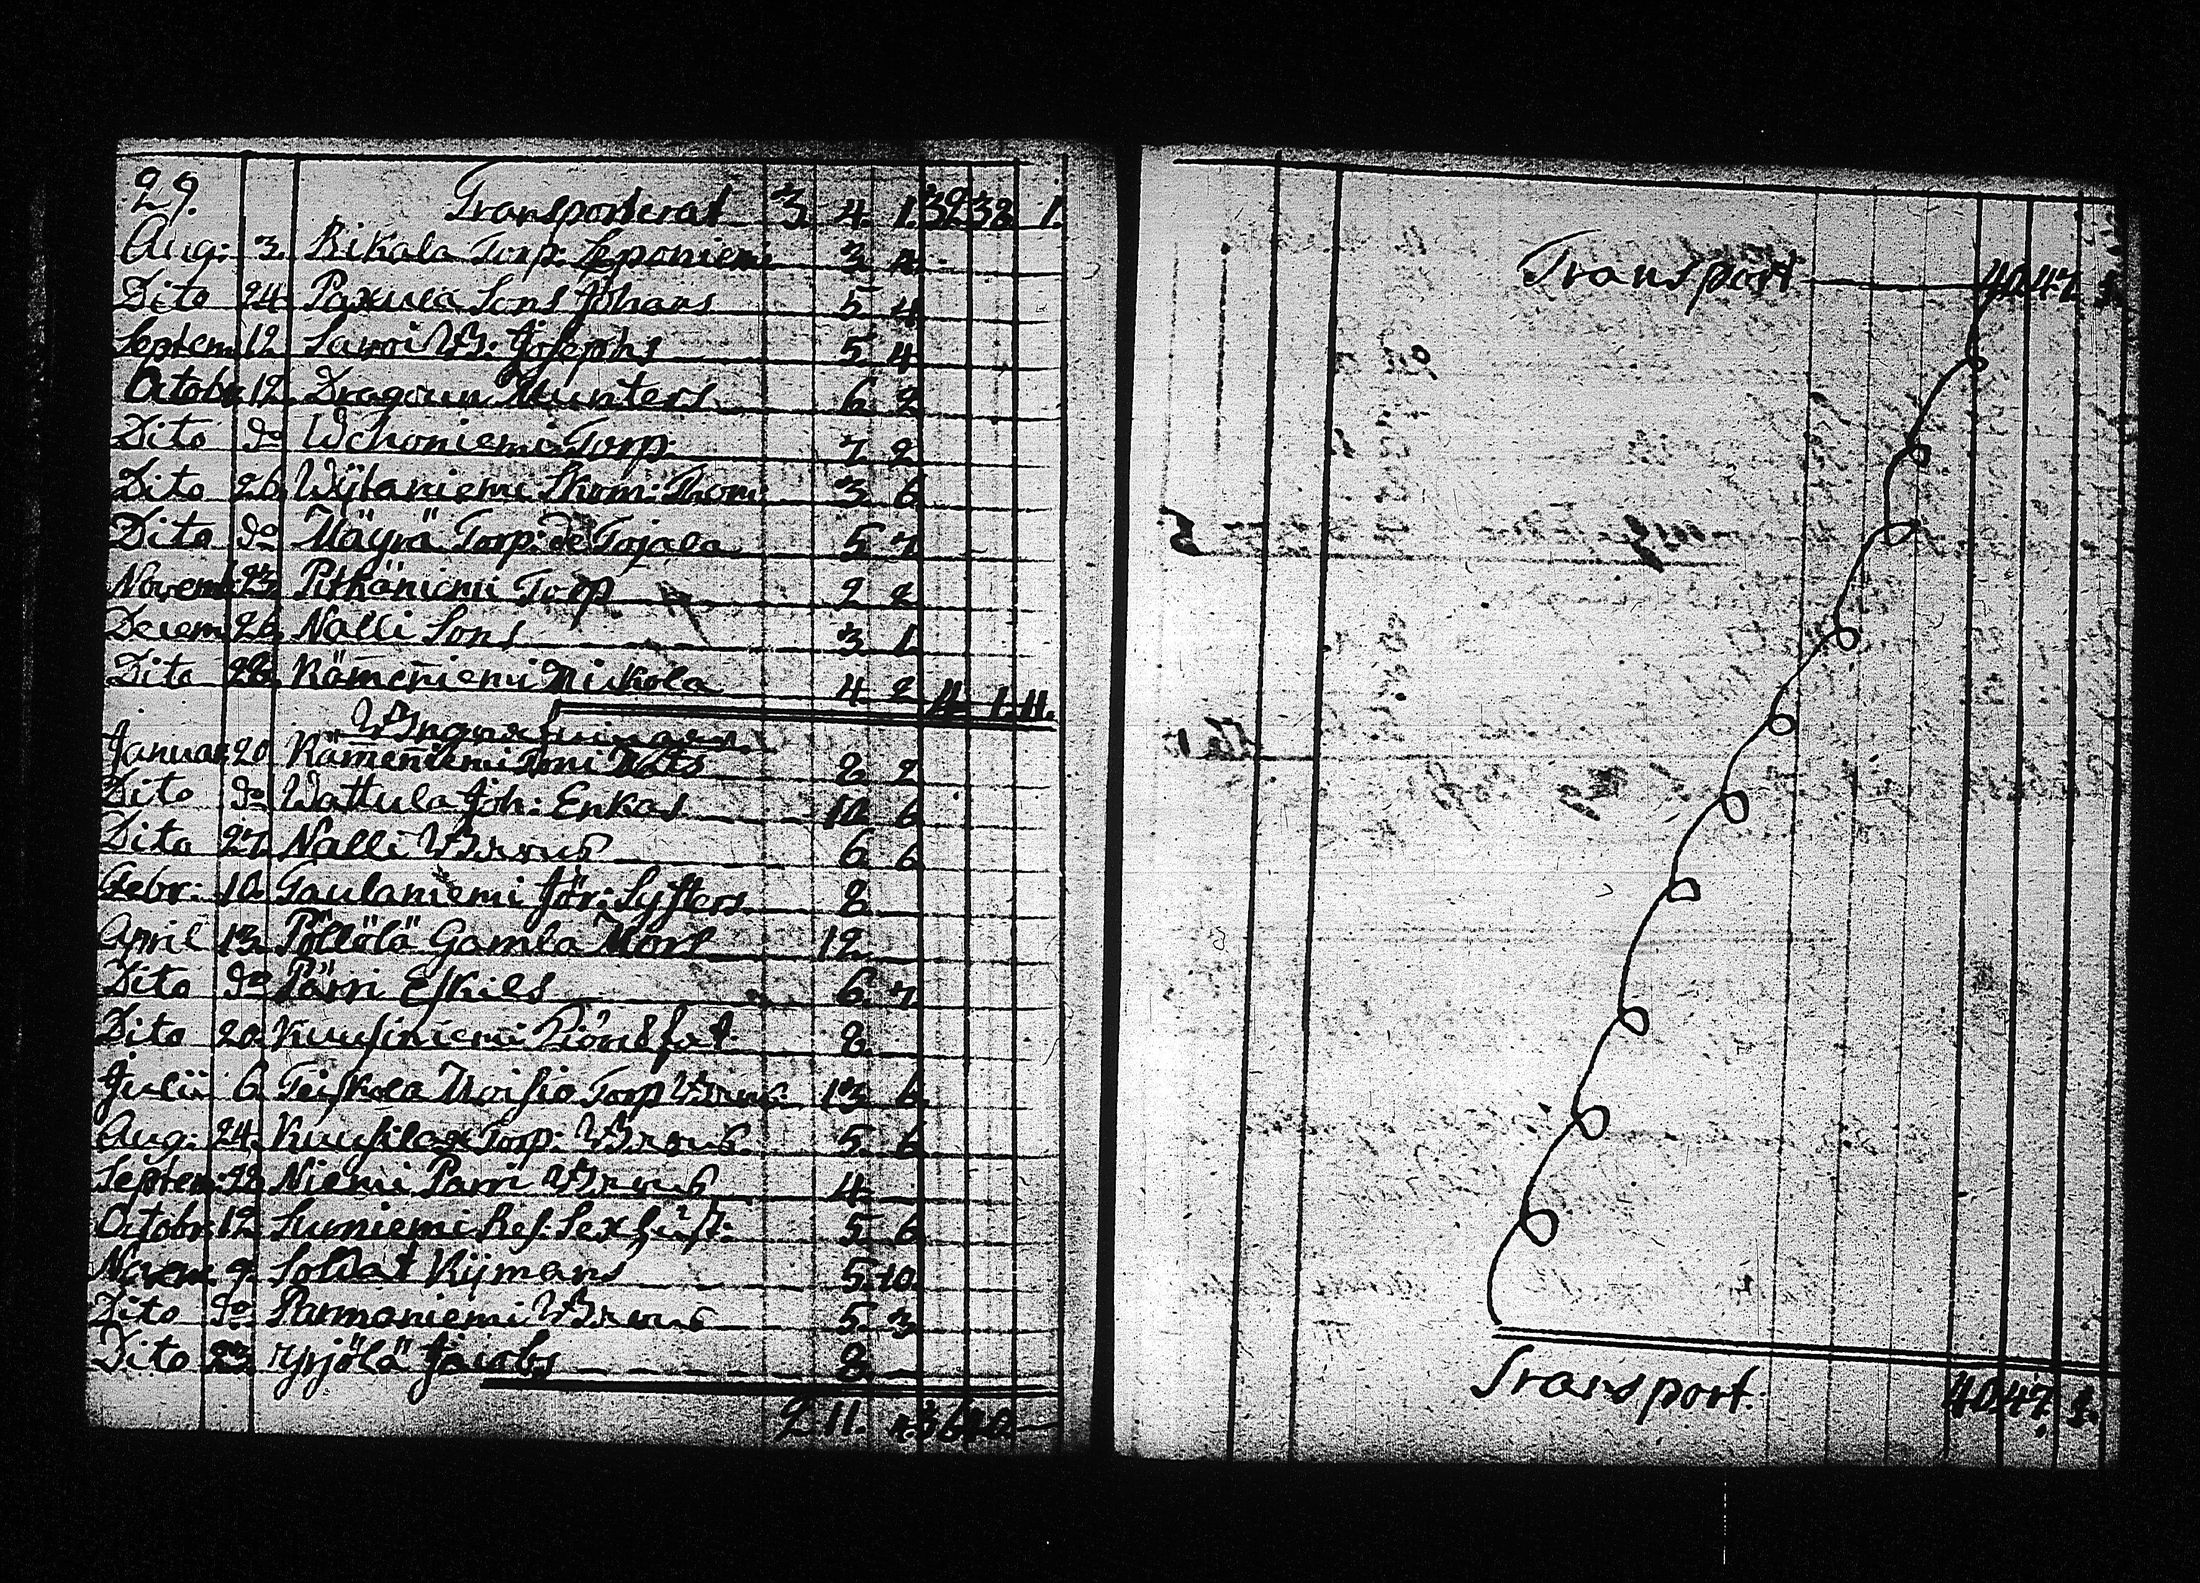 29. Transporterat 3. 4. 1. 3238 1.
Aug: 3. Rikala Torp. Leponiemi 3 4
Dito 24. Paxula Sons Johans 5 4
Septem 12. Savoi Josephs 5. 4
Octobr 12. Dragoun Munters 6 2
Dito do Wchoniemi Torp. 7 2
Dito 26. Wÿlaniemi Thom: 3 6
Dito do Mäyrä Torp: de Tojala 5 7
Novemb 23. Pitkäniemi Torp 2 2
Decem 26. Nalli Sons 3 1.
Dito 28. Rämeniemi Nickola 4 2 4 1. 11.
Januar 20. Rämeniemi Mats 8 2
Dito do Wattula Joh: Enkas 6
Dito 27. Nalli 6 6
Febr: 10. Taulaniemi Jör: Systers 8
April 13. Pöllölä Gamla Mort 12
Dito do Pärri Eskils 6 7
Dito 20. Kuusiniemi 8
Julii 6. Teiskola Moisio Torp 13 6.
Aug: 24. Torp: 5. 6
Septem: 28 Niemi Parri 4
Octobr: 12. Surniemi 5 6
Novem. 9. Soldat Kijmans 5. 10.
Dito do Parmaniemi 5. 3.
Dito 23. Yrjölä Jacobs 8
2 11.
Transport 4047 1.
Transport. 4047 1.